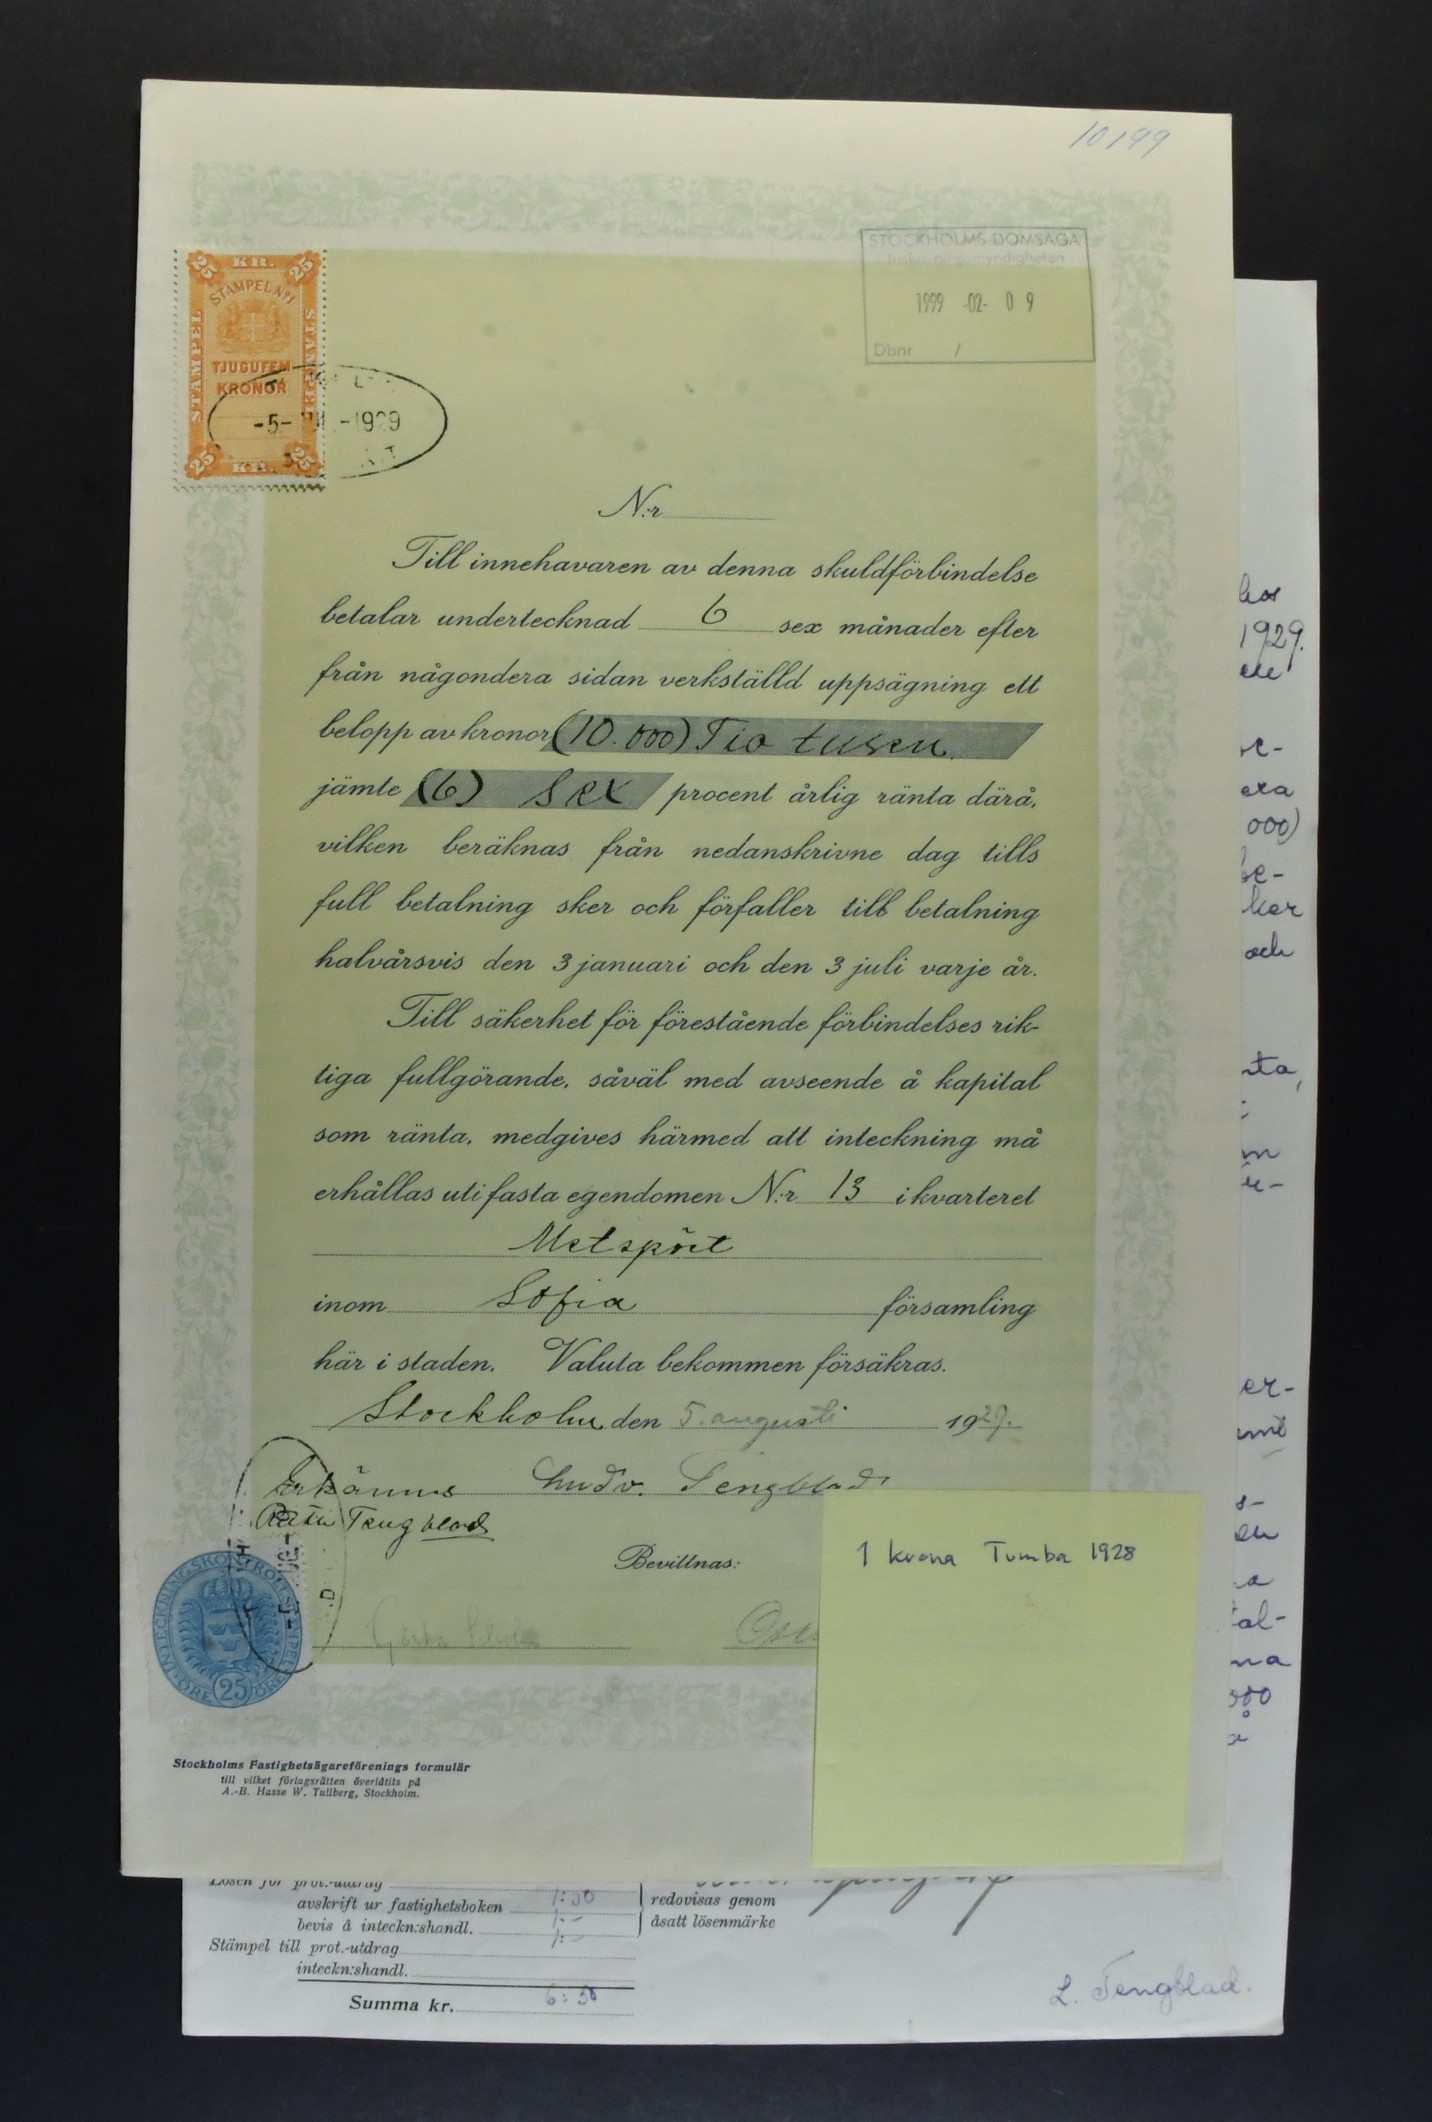 10199
STOCKHOLMS DOMSAGA
Inskrivningsmyndigheten
1999 -02- 0 9
Dbnr /
25 KR. 25
STÄMPEL No 1
STÄMPEL
STÄMPEL
TJUGUFEM
KRONOR
-5- -1929
25 KR. 25
N:r
Till innehavaren av denna skuldförbindelse
betalar undertecknad 6 sex månader efter
från någondera sidan verkställd uppsägning ett
belopp av kronor (10.000) Tio tusen
jämte (6) Sex procent årlig ränta därå,
vilken beräknas från nedanskrivne dag tills
full betalning sker och förfaller till betalning
halvårsvis den 3 januari och den 3 juli varje år.
Till säkerhet för förestående förbindelses rik-
tiga fullgörande, såväl med avseende å kapital
som ränta, medgives härmed att inteckning må
erhållas uti fasta egendomen N:r 13 i kvarteret
Metspöet
inom Sofia församling
här i staden. Valuta bekommen försäkras.
Stockholm den 5. augusti 1929.
Erkännes Ludv. Tengblad
Tengblad
Bevittnas:
Gösta
INTECKNINGSKONTROLLSTÄMPEL
ÖRE 25 ÖRE
1 krona Tumba 1928
Stockholms Fastighetsägareförenings formulär
till vilket förlagsrätten överlåtits på
A.-B. Hasse W. Tullberg, Stockholm.
hos
1929.
000)
och
Lösen för prot.-utdrag
avskrift ur fastighetsboken 1:50
bevis å inteckn:shandl. 1:-
Stämpel till prot.-utdrag 1:-
inteckn:shandl.
Summa kr. 6:50
redovisas genom
åsatt lösenmärke
L. Tengblad.